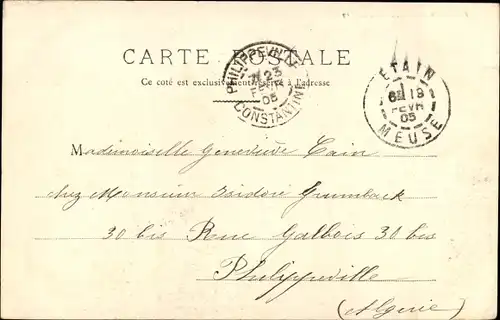 CARTE POSTALE
Ce côté est exclusivement réservé à l'adresse
PHILIPPEVILLE
23
FEVR
05
CONSTANTINE
ETAIN
6E 19
FEVR
05
MEUSE
Mademoiselle Geneviève Cain
chez Monsieur Isidore Grumback
30 bis Rue Galbois 30 bis
Philippeville
(Algérie)